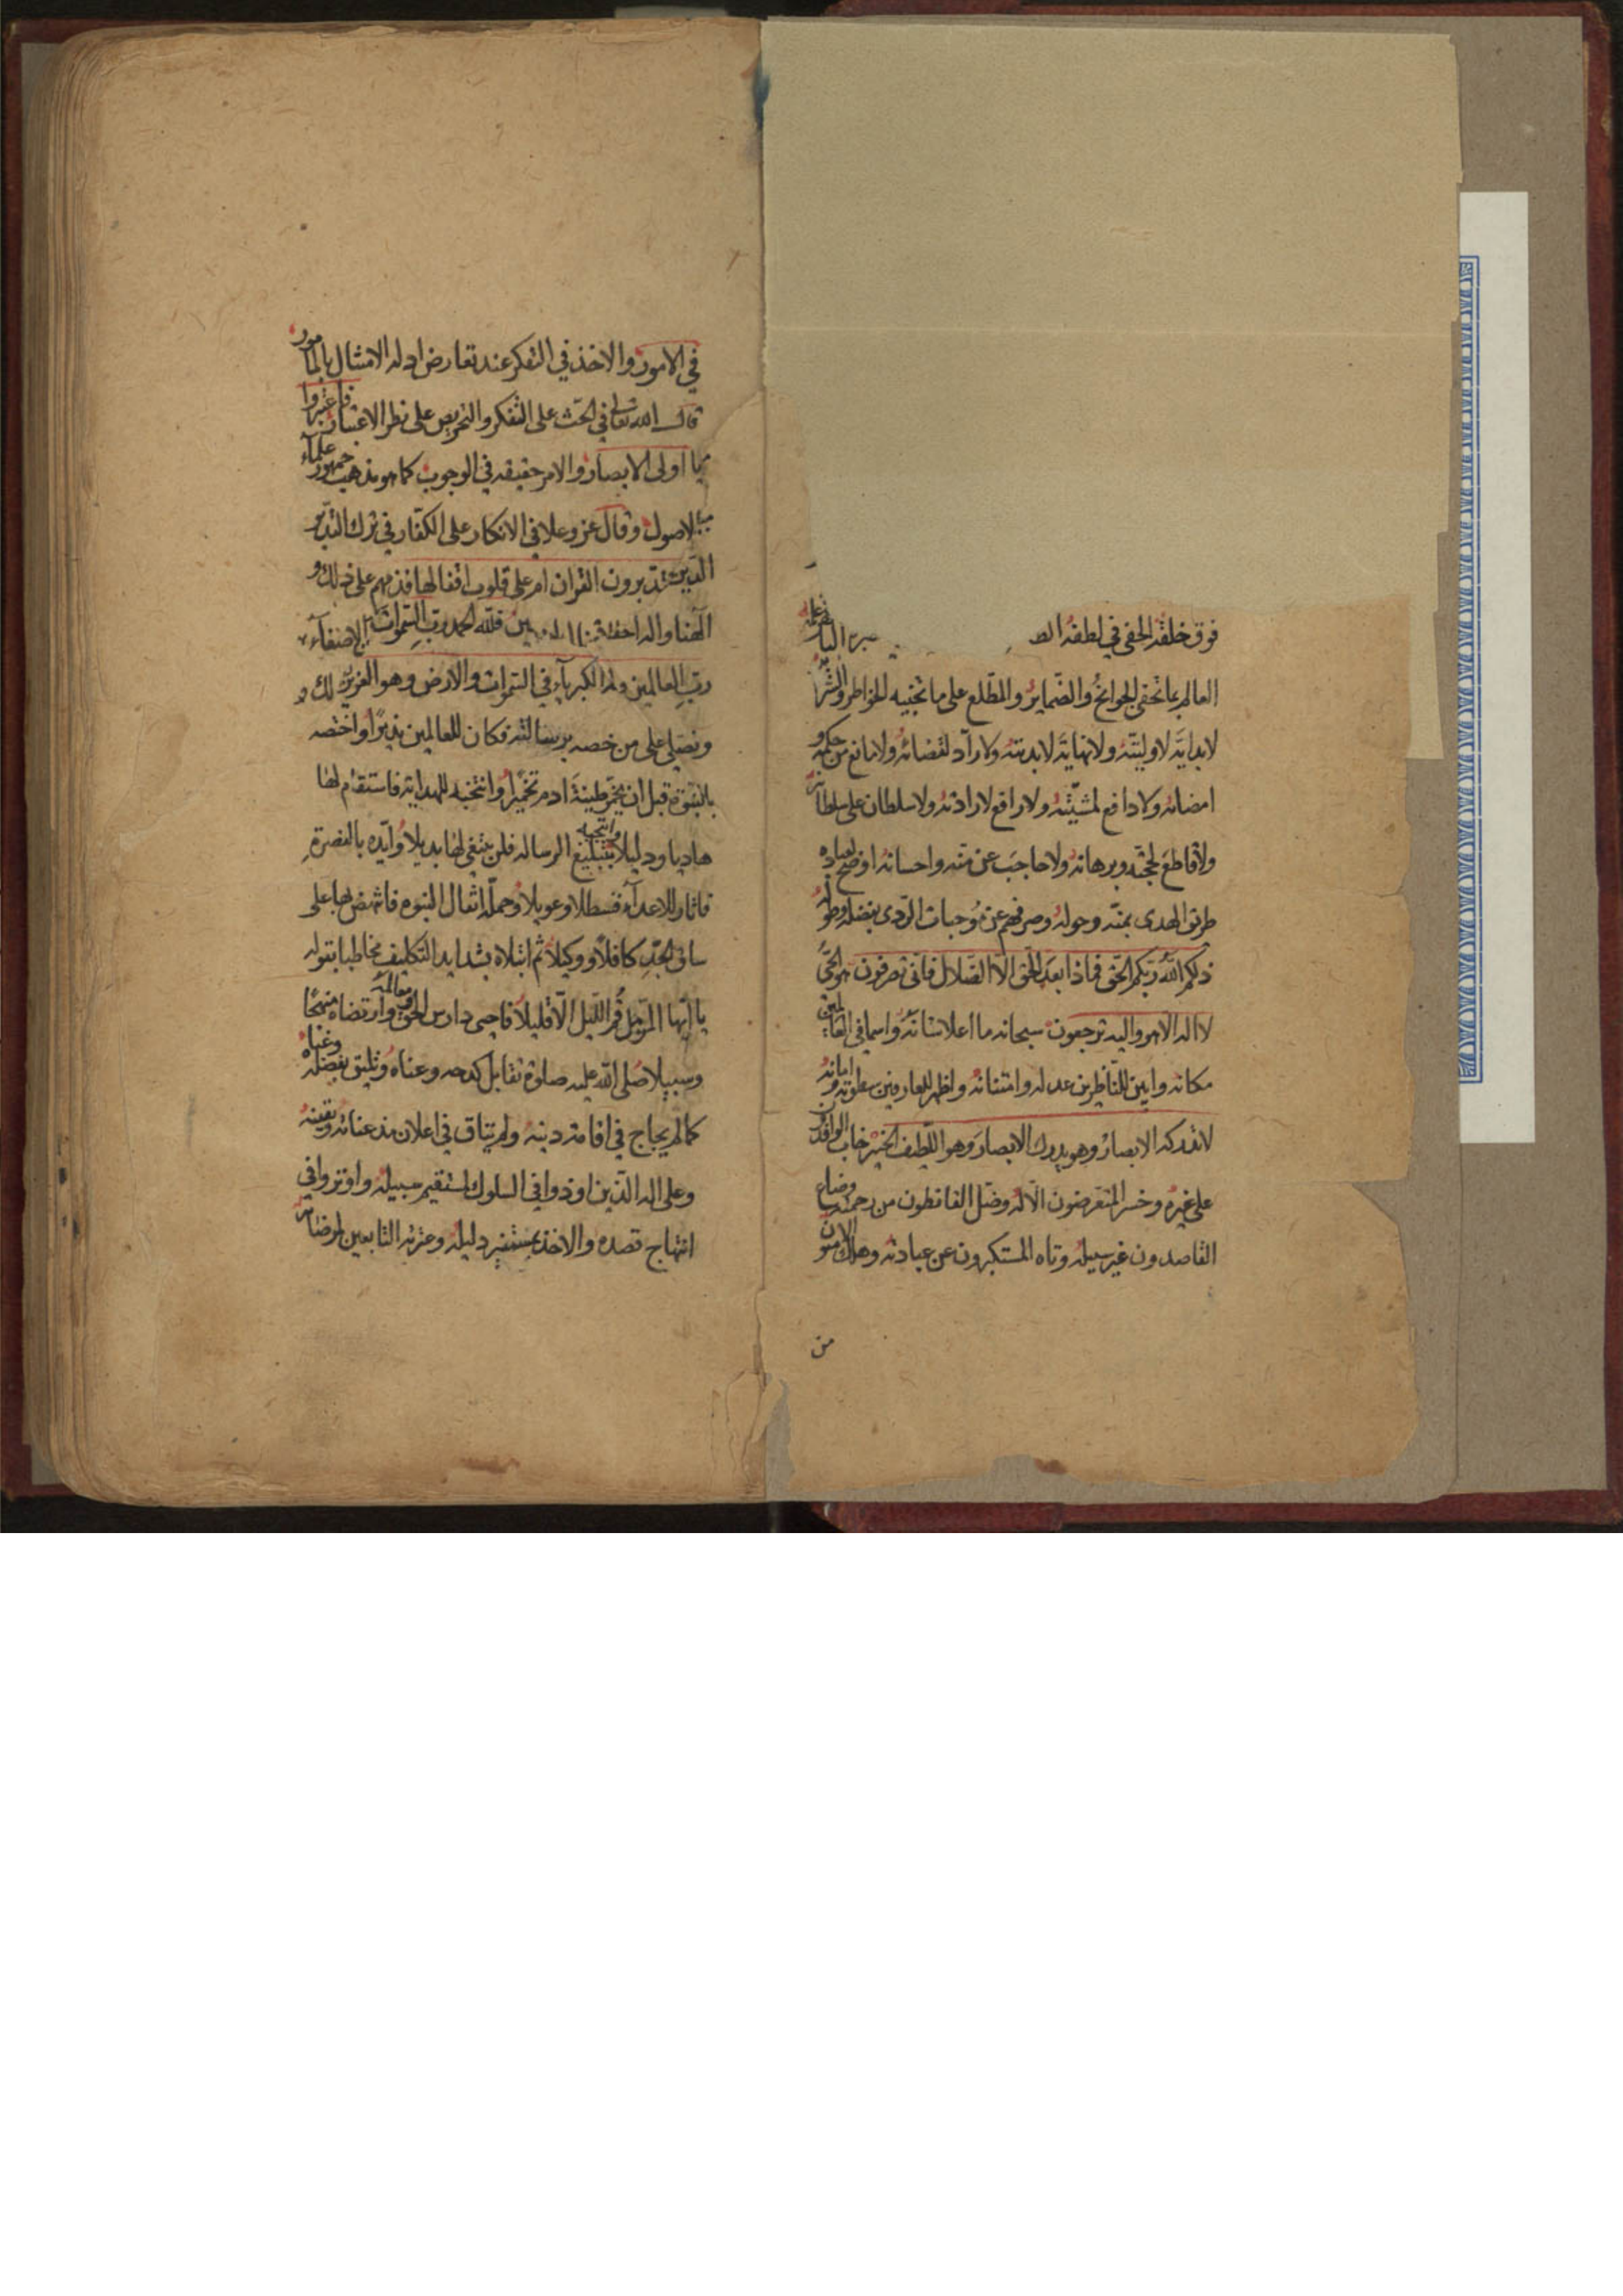 فوق خلقه الخفي في لطفه الط
العالم بما تخفى الجوانح والضماير والمطلع على ما تجنيه الخواطر والسر
لا بداية لاوليته ولا نهاية لابديته ولا راد لقضائه ولا مانع من حكمه و
امضائه ولا دافع لمشيته ولا رافع لارادته ولا سلطان على سلطانه
ولا قاطع لحجته وبرهانه ولا حاجب عن منه واحسانه اوضح لعباده
طريق الهدى بمنه وحوله وصرفهم عن موجبات الردى بفضله وطوله
ذلكم الله ربكم الحق فماذا بعد الحق الا الضلال فانى تصرفون هو الحي
لا اله الا هو واليه ترجعون سبحانه ما اعلا شانه واسما في العالمين
مكانه وابين للناظرين عدله وامتنانه واظهر للعارفين سطوته وامانه
لا تدركه الابصار وهو يدرك الابصار وهو اللطيف الخبير خاب الوافدون
على غيره وخسر المتعرضون الا له وضل القانطون من رحمته وضاع
القاصدون غير سبيله وتاه المستكبرون عن عبادته وهلك الامنون
من
في الامور والاخذ في التفكر عند تعارض ادله الامتثال بالمامور
قال الله تعالى في الحث على التفكر والتحريص على نظر الاعتبار فاعتبروا
يا اولى الابصار والامر حقيقه في الوجوب كما هو مذهب جمهور علماء
الاصول وقال عز وعلا في الانكار على الكفار في ترك التدبر
يتدبرون القران ام على قلوب اقفالها فذمهم على ذلك و
الهنا واله فلله الحمد رب السموات
رب العالمين وله الكبرياء في السموات والارض وهو العزيز
ونصلى على من خصه برسالته فكان للعالمين نذيرا واختصه
بالنبوة قبل ان يخمر طينة ادم تخميرا وانتخبه للهداية فاستقام لها
هاديا ودليلا وانتجبه بتبليغ الرساله فلن يبتغي لها بديلا وايده بالنصرة
فاثار للاعداء قسطلا وعويلا وحمله اثقال النبوه فانتهض بها على
ساق الجد كافلا ووكيلا ثم ابتلاه بشدايد التكليف مخاطبا بقوله
يا ايها المزمل قم الليل الا قليلا فاحيى دارس الحق ومعالمه وارتضاه منهجا
وسبيلا صلى الله عليه صلوة تقابل كدحه وعناه وتليق بفضله وغناه
كما لم يحاج في اقامة دينه ولم يتاق في اعلان مذ عنائه ويقينه
وعلى اله الذين اوذوا في السلوك لمستقيم سبيله واوتروا في
انتهاج قصده والاخذ بمستنير دليله وعترته التابعين لمرضاته